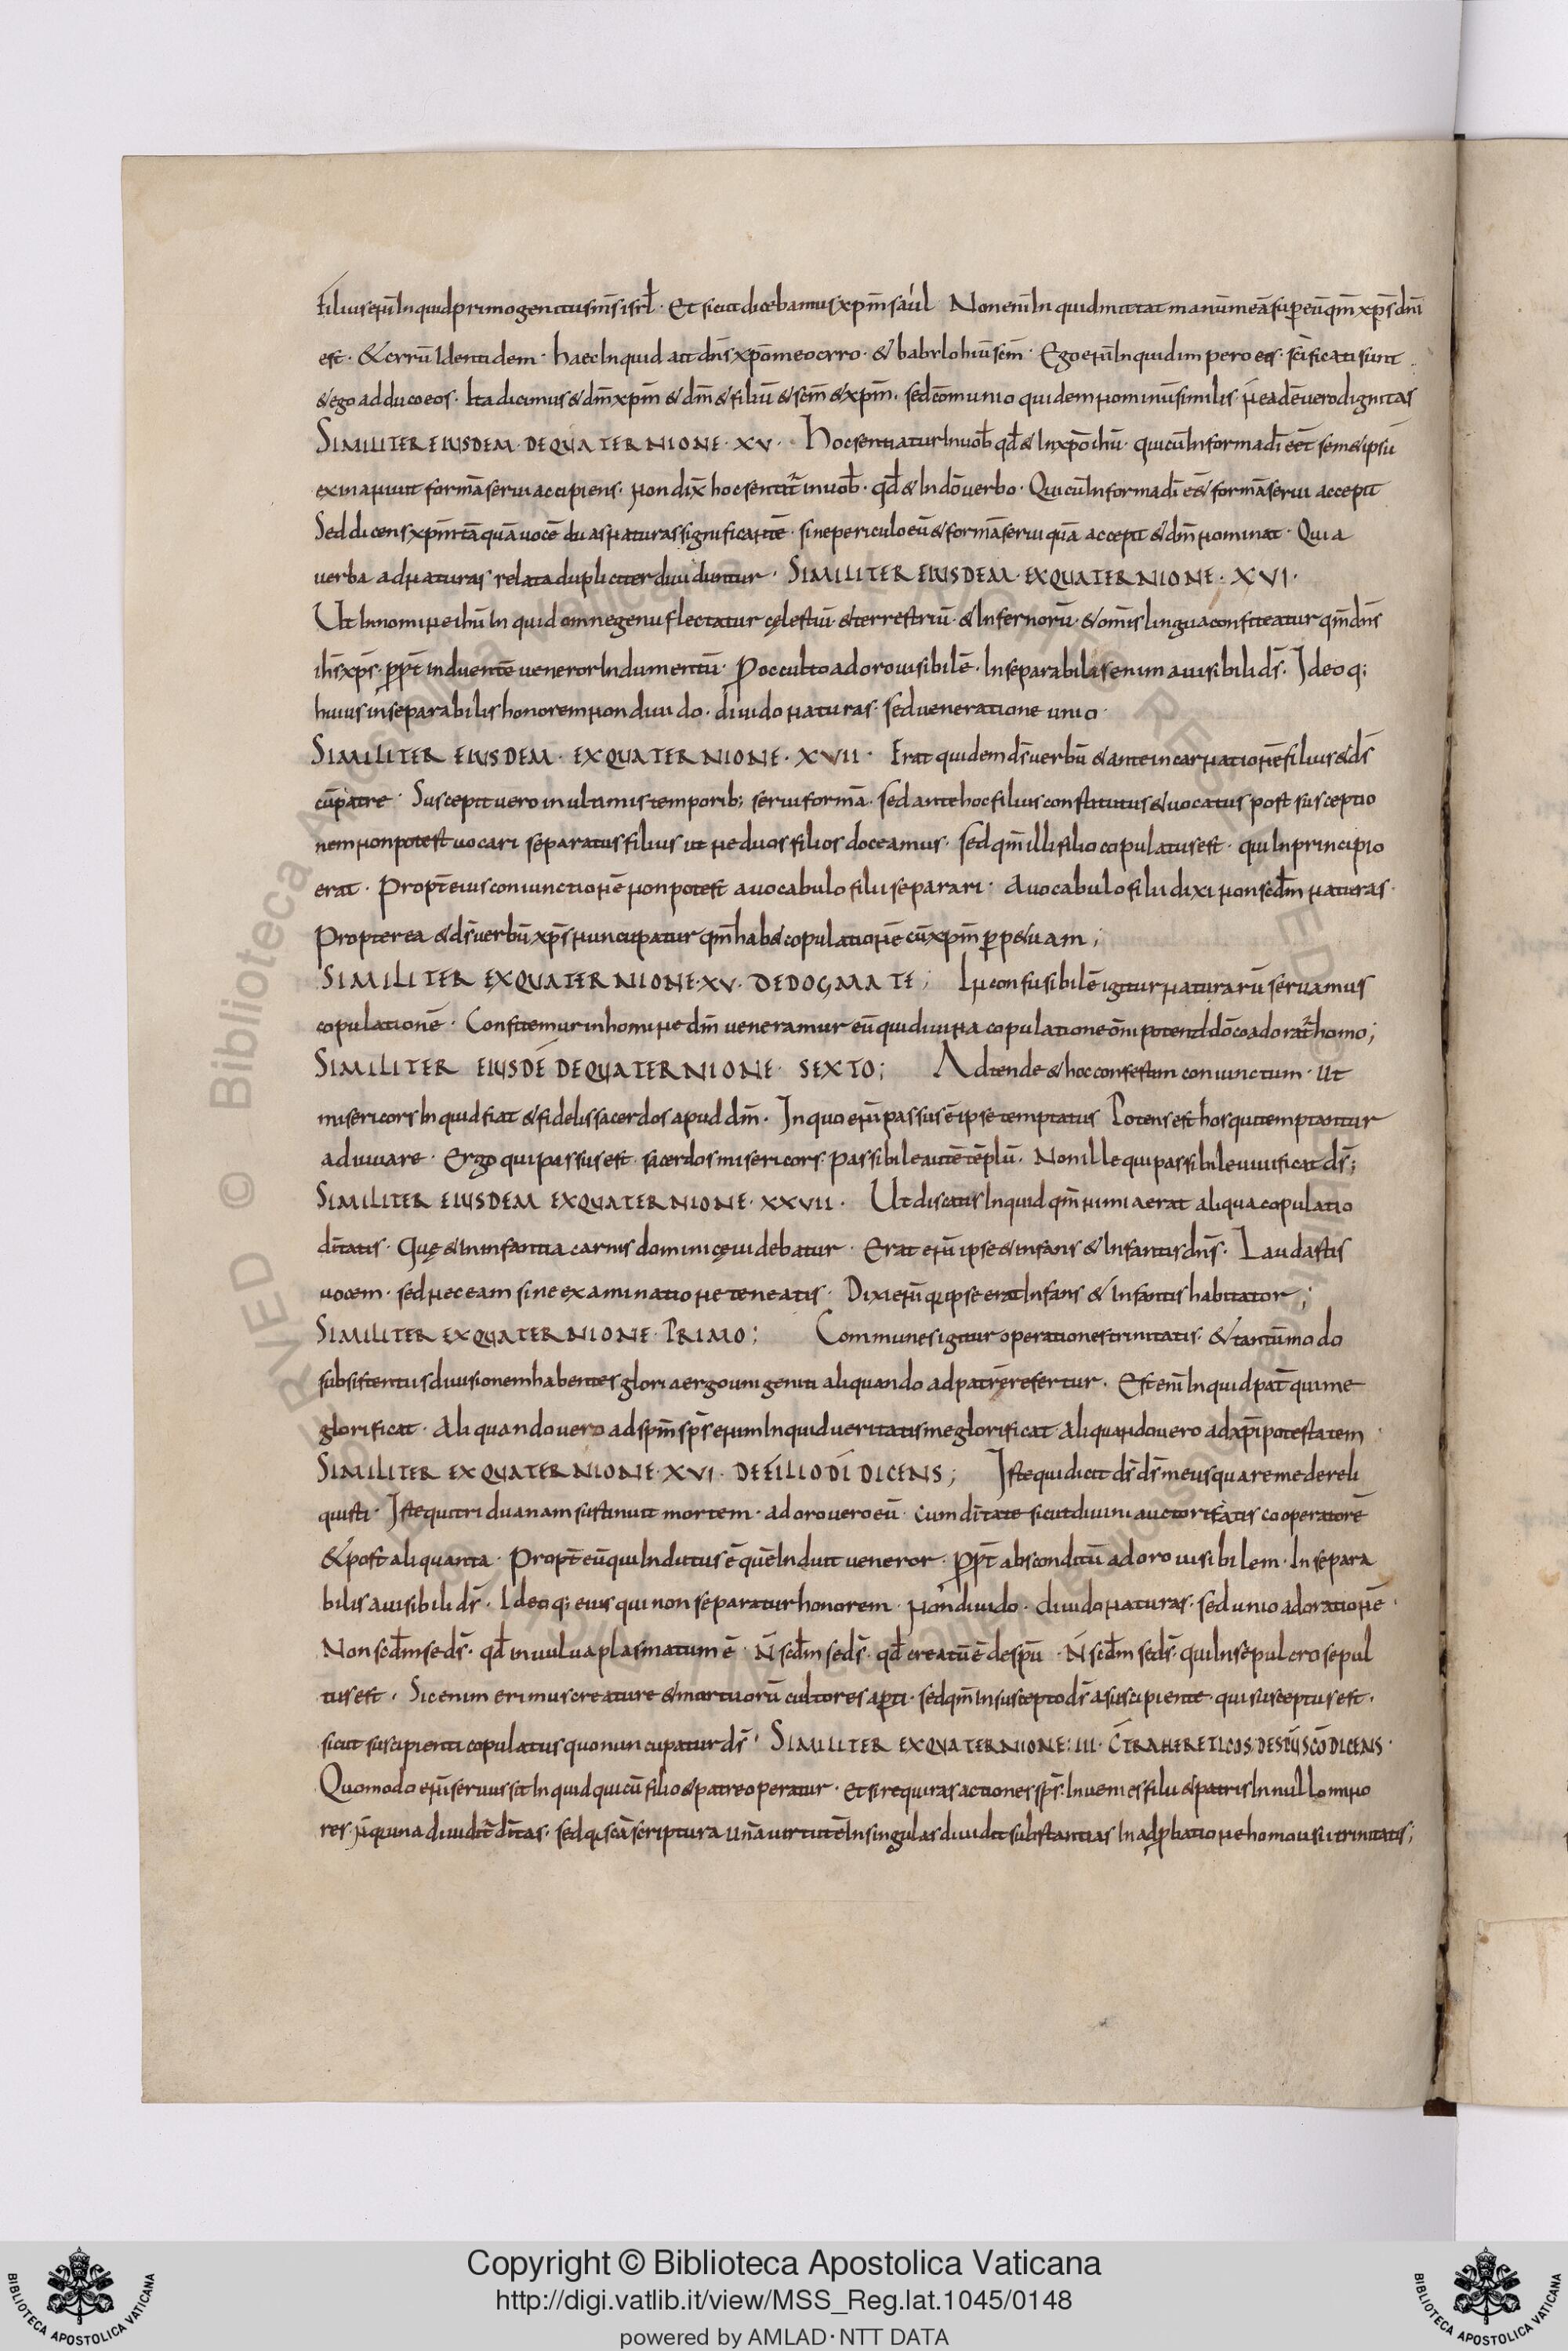 Filius enī Inquid primogenitus ms̄ isrl̄ · Et sicut dicebamus xpm̄ saúl Non enī In quid mittat manū meā sup eū qm̄ xps̄ dnī
est · & cyrū Identidem · haec Inquid ait dns̄ xpō meo cyro · & babyloniū scm̄ · Ego enī Inquid impero eis · scīficati sunt
& ego adduco eos · Ita dicimus & dm̄ xpm̄ & dm̄ & filiū & scm̄ & xpm̄ · sed cōmunio quidem nominū similis · n̄ eadē vero dignitas
SIMILITER EIUSDEM · DEQUATERNIONE · XV · Hoc sentiatur In uob̄ qd̄ & In xpō ihū · qui cū In forma dī eēt sem&ipsū
exinaniuit formā serui accipiens · non dix̄ hoc sentit̄ in uob̄ · qd̄ & In dō verbo · Qui cū In forma dī ēs & formā serui accepit
Sed dicens xpm̄ tāquā uocē duas naturas significantē · sine periculo eū & formā serui quā accepit & dm̄ nominat · Quia
verba ad naturas relata dupliciter diuiduntur · SIMILITER EIUSDEM · EXQUATERNIONE · XVI ·
Ut In nomine ihū In quid omne genu flectatur cęlestiū · & terrestriū · & Infernorū · & om̄is lingua confiteatur qm̄ dns̄
ihs̄ xps̄ · ppt̄ induentē veneror Indumentū · P occulto adoro uisibilē · Inseparabilis enim a uisibili ds̄ · Ideoq;
huius inseparabilis honorem non diuido · diuido naturas · sed veneratione unio ·
SIMILITER EIUSDEM · EXQUATERNIONE · XVII · Erat quidem ds̄ verbū & ante incarnationē filius & ds̄
cū patre · Suscepit vero in ultimis temporib; serui formā · sed ante hoc filius constitutus & uocatus post susceptio
nem non potest uocari separatus filius ut ne duos filios doceamus · sed qm̄ illi filio copulatus est · qui In principio
erat · Propt̄ eius coniunctionē non potest a uocabulo filii separari · A uocabulo filii dixi non scdm̄ naturas ·
Propterea & ds̄ verbū xps̄ nuncupatur qm̄ hab& copulationē cū xpm̄ pp&uam ;
SIMILITER EXQUATERNIONE · XV · DEDOGMATE ; Inconfusibilē igitur naturarū servamus
copulationē · Confitemur in homine dm̄ veneramur eū qui diuina copulatione om̄ipotenti dō coadorat̄ homo ;
SIMILITER EIUSDĒ DEQUATERNIONE SEXTO ; Adtende & hoc confestim coniunctum · Ut
misericors In quid fiat & fidelis sacerdos apud dm̄ · In quo enī passus ē ipse temptatus Potens est hos qui temptantur
adiuuare · Ergo qui passus est · sacerdos misericors · Passibile autē tēplū · Non ille qui passibile uiuificat ds̄ ;
SIMILITER EIUSDEM EXQUATERNIONE · XXVII · Ut discatis In quid qm̄ nimia erat aliqua copulatio
dīatis · Quę & In infantia carnis dominicę uidebatur · Erat enī ipse & infans & Infantis dns̄ · Laudastis
uocem · sed nec eam sine examinatione teneatis · Dixi enī q ipse erat Infans & Infantis habitator ;
SIMILITER EXQUATERNIONE · PRIMO ; Communes igitur operationes trinitatis · & tantūmodo
subsistentiis diuisionem habentes gloria ergo unigeniti aliquando ad patrē refertur · Est enī In quid pat̄ qui me
glorificat · Aliquando vero ad spm̄ sps̄ enim In quid veritatis me glorificat Aliquando vero ad xpī potestatem ·
SIMILITER EXQUATERNIONE · XVI · DE FILIO DĪ DICENS ; Iste qui dicit ds̄ ds̄ meus quare me dereli
quisti · Iste qui triduanam sustinuit mortem · adoro vero eū · cum dītate sicut diuini auctoritatis cooperatorē
& post aliquanta · Propt̄ eū qui Indutus ē quē Induit veneror · ppt̄ absconditū adoro uisibilem · Insepara
bilis a uisibili ds̄ · Ideoq; eius qui non separatur honorem · non diuido · diuido naturas · sed unio adorationē ·
Non scdm̄ se ds̄ · qd̄ in uulua plasmatum ē · N̄ scdm̄ se ds̄ · qd̄ creatū ē de spū · N̄ scdm̄ se ds̄ · qui In sepulcro sepul
tus est · Sic enim erimus creature & mortuorū cultores apti · sed qm̄ In suscepto ds̄ a suscipiente · qui susceptus est ·
sicut suscipienti copulatus quo nuncupatur ds̄ · SIMILITER EXQUATERNIONE : III · CT̄RA HERETICOS DE SPŪ SCŌ DICENS ·
Quomodo enī seruus sit In quid qui cū filio & patre operatur · Et si requiras actiones sps̄ · Inuenies filii & patris In nullo mino
res n̄ q una diuidit̄ dīatas · sed q scā scriptura unā uirtutē In singulas diuidit substantias In adpbatione homousii trinitatis ;
Copyright © Biblioteca Apostolica Vaticana
http://digi.vatlib.it/view/MSS_Reg.lat.1045/0148
powered by AMLAD · NTT DATA
BIBLIOTECA APOSTOLICA VATICANA
BIBLIOTECA APOSTOLICA VATICANA